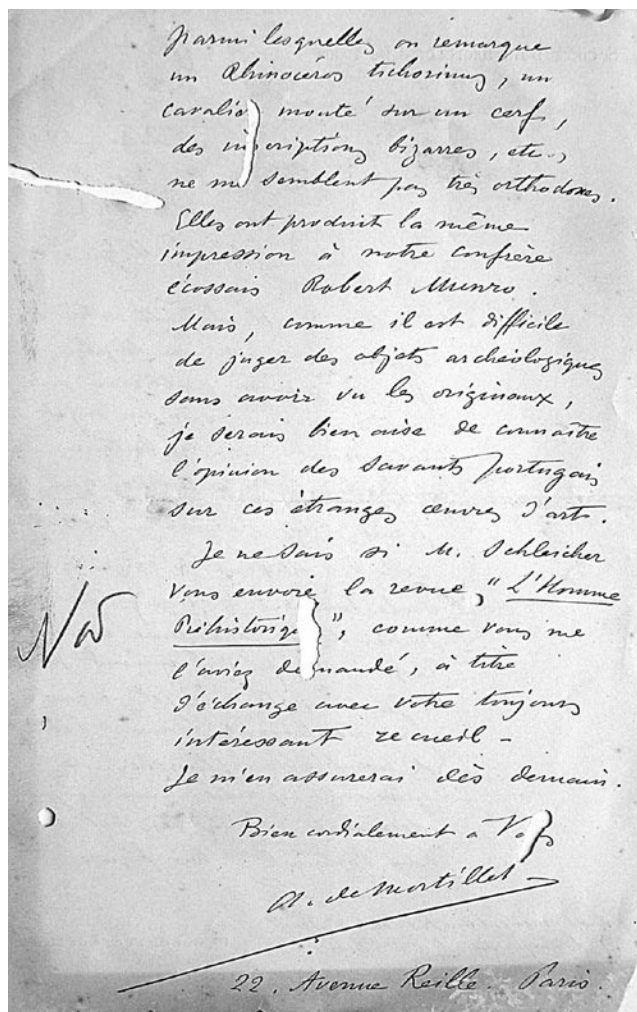 parmi lesquelles on remarque
un Rhinocéros tichorinus, un
cavalier monté sur un cerf,
des inscriptions bizarres, etc.,
ne me semblent pas très orthodoxes.
Elles ont produit la même
impression à notre confrère
écossais Robert Munro.
Mais, comme il est difficile
de juger des objets archéologiques
sans avoir vu les originaux,
je serais bien aise de connaître
l'opinion des savants portugais
sur ces étranges œuvres d'art.
Je ne sais si M. Schleicher
vous envoie la revue, "L'Homme
Préhistorique", comme vous me
l'aviez demandé, à titre
d'échange avec votre toujours
intéressant recueil -
Je m'en assurerai dès demain.
Bien cordialement à Vous
A. de Mortillet
22, Avenue Reille. Paris.